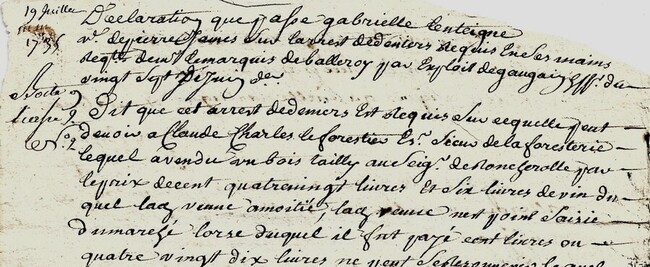 19 Juillet
1735
Declaration que passe gabrielle
v.e de pierre James sur larrest de deniers Requis En ses mains
Reqte de mr le marquis de balleroy par Exploit de gaugain du
vingt sept de Juin der
Nota
Dit que cet arrest de deniers Est Requis sur ce quelle peut
N.o 2 devoir a Claude Charles le forestier Esr. Sieur de la foresterie
lequel a vendu un bois tailly au Seigr. de Roncherolle par
le prix de cent quatre vingt livres Et Six livres de vin du
quel lad. venue a moitié, lad. venue nest point Saisie
du marché lorse duquel il fut payé cent livres ou
quatre vingt dix livres ne peut